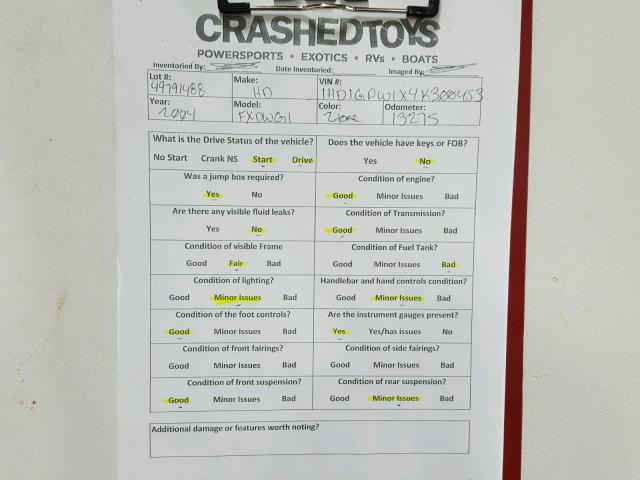 CRASHEDTOYS
POWERSPORTS • EXOTICS • RVs • BOATS
Inventoried By: Date Inventoried: Imaged By:
Lot #: Make: VIN #:
49791488 HD 1HD1GPW1X4K300453
Year: Model: Color: Odometer:
2004 FXDWG1 2tone 13275
What is the Drive Status of the vehicle? Does the vehicle have keys or FOB?
No Start Crank NS Start Drive Yes No
Was a jump box required? Condition of engine?
Yes No Good Minor Issues Bad
Are there any visible fluid leaks? Condition of Transmission?
Yes No Good Minor Issues Bad
Condition of visible Frame Condition of Fuel Tank?
Good Fair Bad Good Minor Issues Bad
Condition of lighting? Handlebar and hand controls condition?
Good Minor Issues Bad Good Minor Issues Bad
Condition of the foot controls? Are the instrument gauges present?
Good Minor Issues Bad Yes Yes/has issues No
Condition of front fairings? Condition of side fairings?
Good Minor Issues Bad Good Minor Issues Bad
Condition of front suspension? Condition of rear suspension?
Good Minor Issues Bad Good Minor Issues Bad
Additional damage or features worth noting?